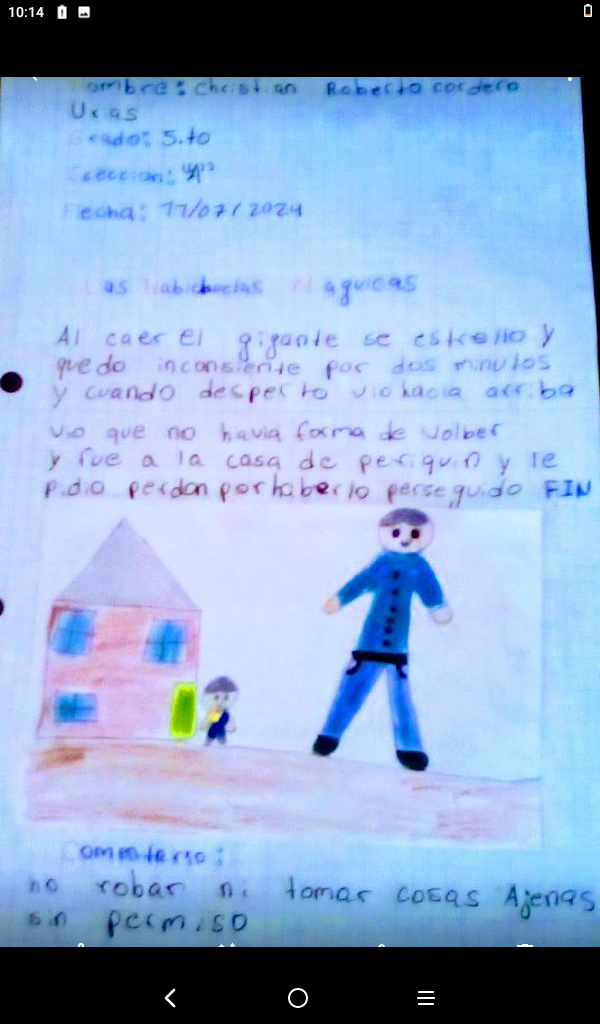 10:14
ombre: christian Roberto cordero
Urias
Grado: 5.to
Seccion: "A"
Fecha: 17/07/2024
Las Habichuelas Maguicas
Al caer el gigante se estrello y
quedo inconsiente por dos minutos
y cuando desperto vio hacia arriba
vio que no havia forma de volber
y fue a la casa de periquin y le
pidio perdon por haberlo perseguido FIN
Comentario:
no robar ni tomar cosas Ajenas
sin permiso